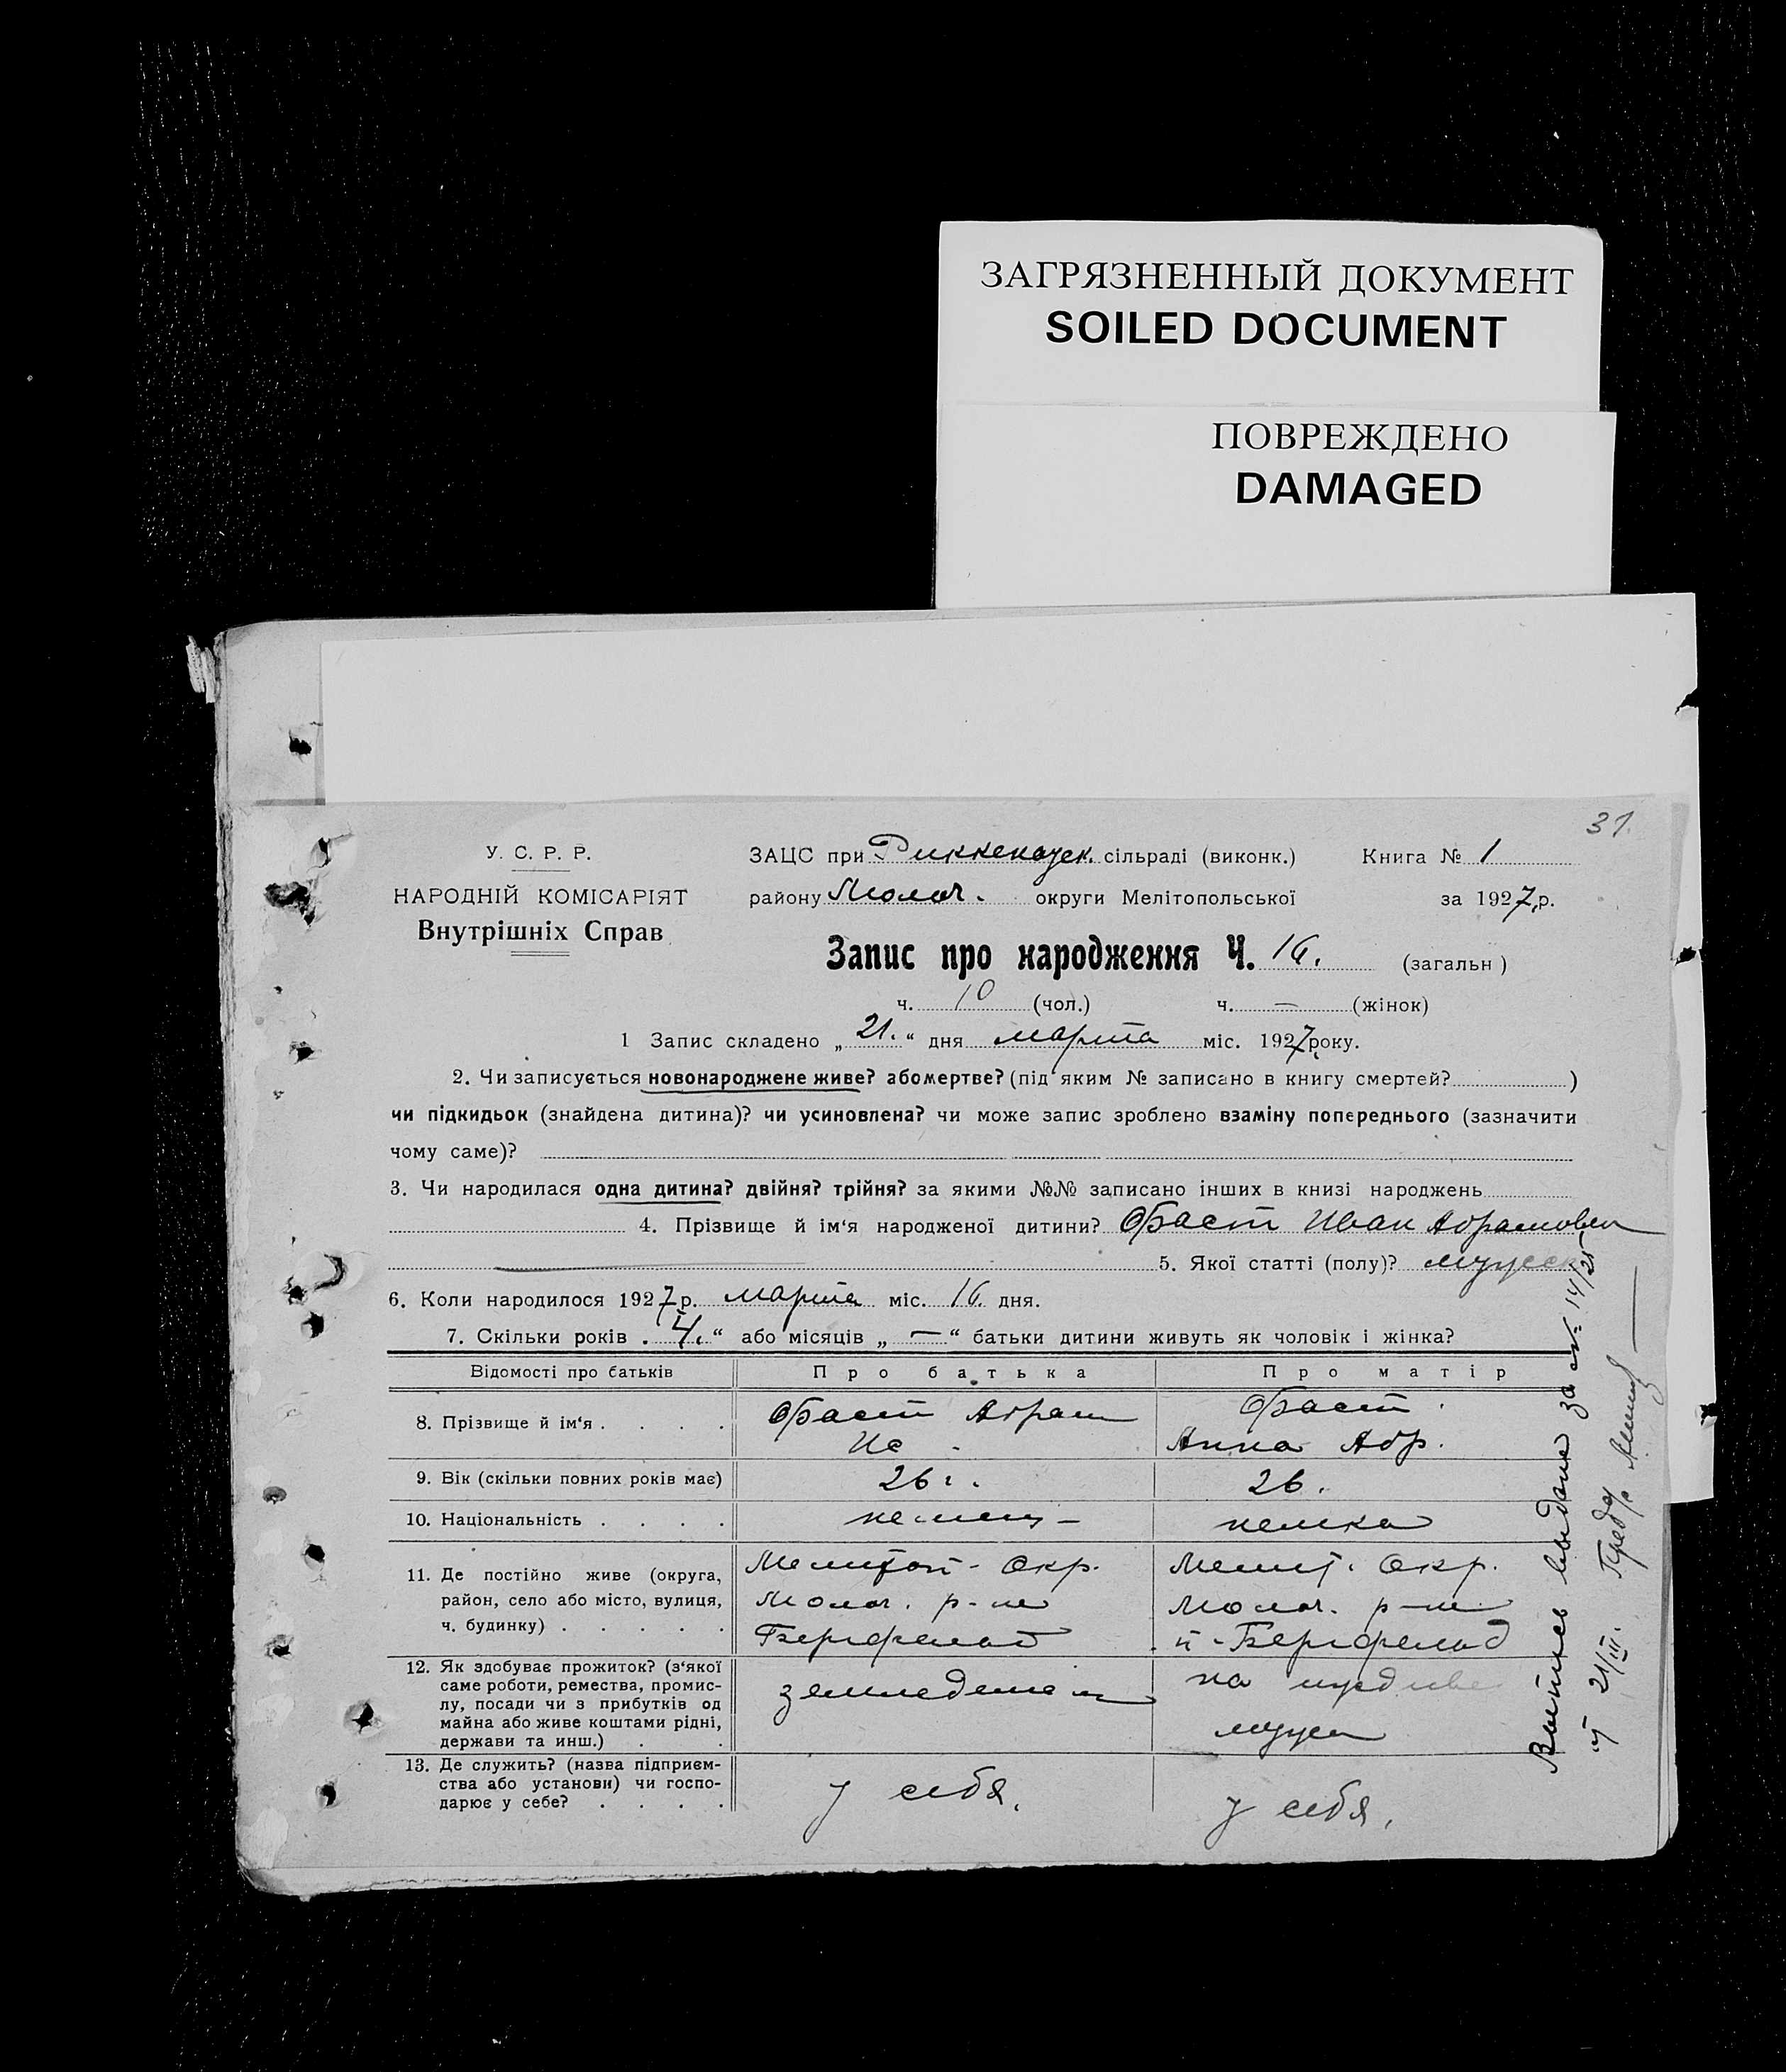 ЗАГРЯЗНЕННЫЙ ДОКУМЕНТ
SOILED DOCUMENT
ПОВРЕЖДЕНО
DAMAGED
31.
У. С. Р. Р.
НАРОДНІЙ КОМІСАРІЯТ
Внутрішніх Справ
ЗАЦС при Риккенауск. сільраді (виконк.) Книга № 1
району Молоч. округи Мелітопольської за 1927 р.
Запис про народження Ч. 16. (загальн)
ч. 10 (чол.) ч. — (жінок)
1 Запис складено „ 21. “ дня марта міс. 1927 року.
2. Чи записується новонароджене живе? або мертве? (під яким № записано в книгу смертей? )
чи підкидьок (знайдена дитина)? чи усиновлена? чи може запис зроблено взаміну попереднього (зазначити
чому саме)?
3. Чи народилася одна дитина? двійня? трійня? за якими №№ записано інших в книзі народжень
4. Прізвище й ім‘я народженої дитини? Фаст Иван Абрамович
5. Якої статті (полу)? мужск
6. Коли народилося 1927 р. марта міс. 16. дня.
7. Скільки років . 4. “ або місяців „ — “ батьки дитини живуть як чоловік і жінка?
Відомості про батьків Про батька Про матір
8. Прізвище й ім‘я . . . . Фаст Абрам Фаст
Ис Анна Абр.
9. Вік (скільки повних років має) 26 г. 26.
10. Національність . . . . немец – немка
11. Де постійно живе (округа, Мелитоп - Окр. Мелит. Окр.
район, село або місто, вулиця, Молоч. р-не Молоч. р-не
ч. будинку) . . . . . Бергфельд п - Бергфельд
12. Як здобуває прожиток? (з‘якої
саме роботи, ремества, промис-
лу, посади чи з прибутків од
майна або живе коштами рідні,
держави та инш.) . .
земледелием на иждиве
мужа
13. Де служить? (назва підприєм-
ства або установи) чи госпо-
дарює у себе? . . . .
у себя. у себя.
Выпись выдана за № 14/25
21/III. Предс/р